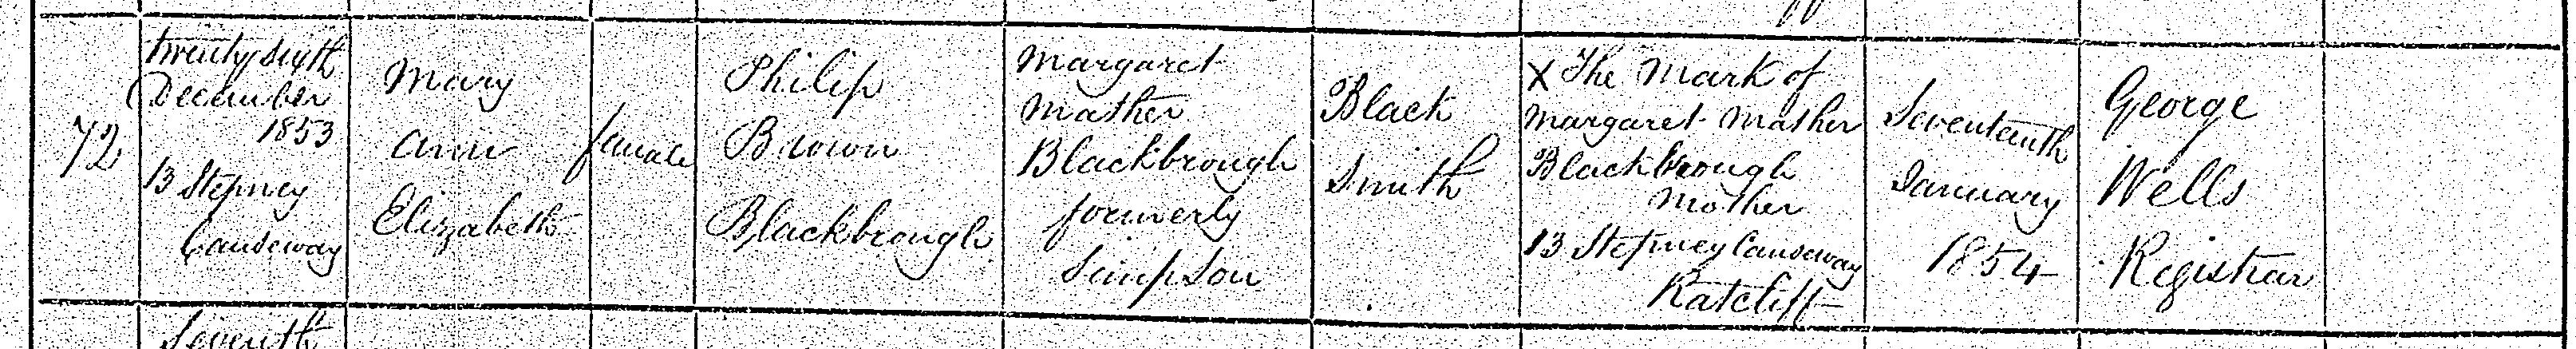 72
Twenty Sixth
December
1853
13 Stepney
Causeway
Mary
Ann
Elizabeth
female
Philip
Brown
Blackbrough
Margaret
Mather
Blackbrough
formerly
Simpson
Black
Smith
X The Mark of
Margaret Mather
Blackbrough
Mother
13 Stepney Causeway
Ratcliff
Seventeenth
January
1854
George
Wells
Registrar
Seventh